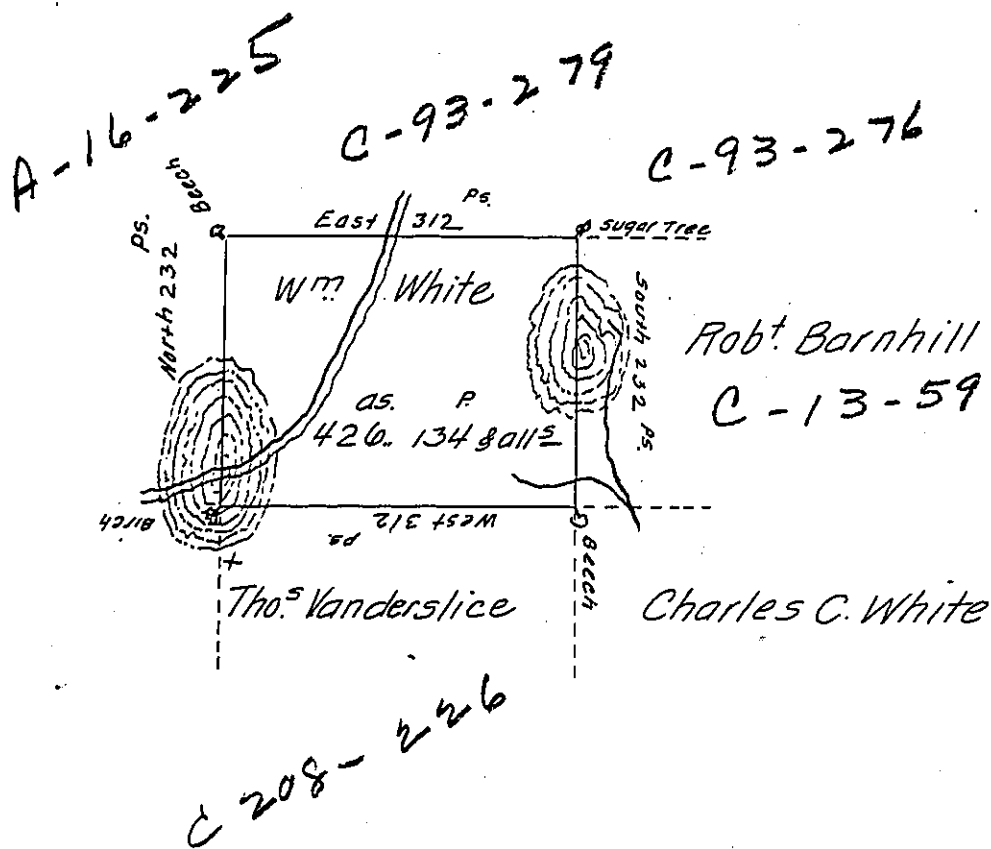 A-16-225
C-93-279
C-93-276
Beech
East 312 Ps.
Sugar Tree
North 232 Ps.
Wm White
South 232 Ps.
Robt. Barnhill
C-13-59
as. P.
426.. 134 & alls
Birch
West 312 Ps.
Beech
Thos. Vanderslice
Charles C. White
C 208-226